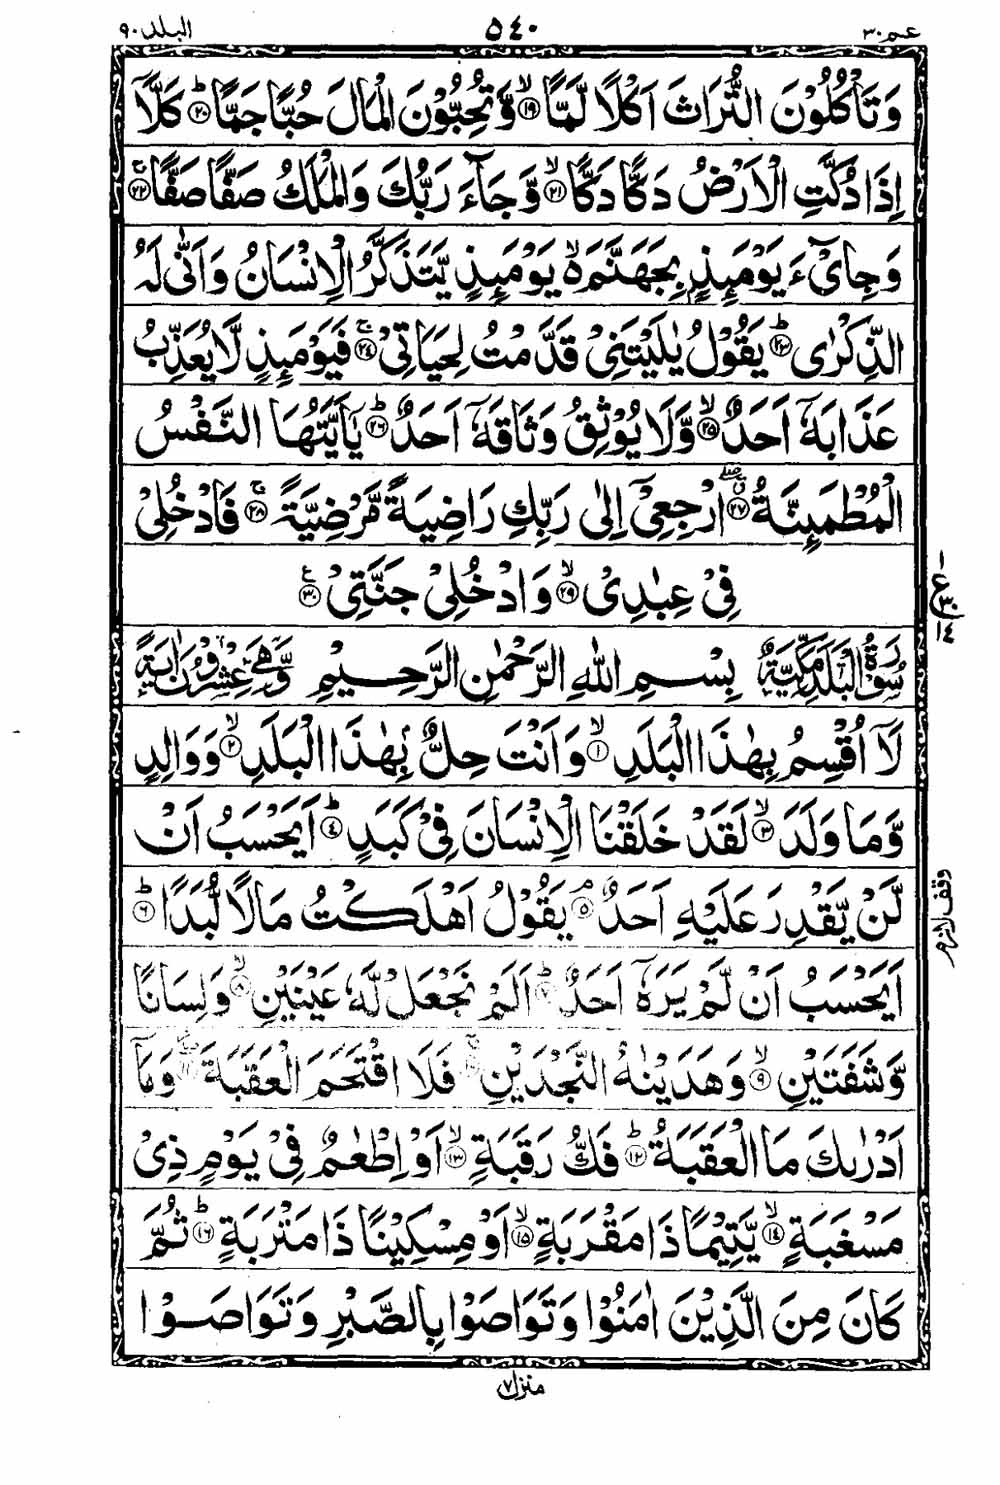 عم ٣٠
٥٤٠
البلد ٩٠
وَتَاْكُلُوْنَ التُّرَاثَ اَكْلًا لَّمًّا ۙ‏﴿۱۹﴾ وَّتُحِبُّوْنَ الْمَالَ حُبًّا جَمًّا ؕ‏﴿۲۰﴾ كَلَّاۤ
اِذَا دُكَّتِ الْاَرْضُ دَكًّا دَكًّا ۙ‏﴿۲۱﴾ وَّجَآءَ رَبُّكَ وَالْمَلَكُ صَفًّا صَفًّا ۚ‏﴿۲۲﴾
وَجِایْٓءَ يَوْمَئِذٍۭ بِجَهَنَّمَ ۙ۬ يَوْمَئِذٍ يَّتَذَكَّرُ الْاِنْسَانُ وَاَنّٰى لَهُ
الذِّكْرٰى ؕ‏﴿۲۳﴾ يَقُوْلُ يٰلَيْتَنِىْ قَدَّمْتُ لِحَيَاتِىْ ۚ‏﴿۲۴﴾ فَيَوْمَئِذٍ لَّا يُعَذِّبُ
عَذَابَهٗۤ اَحَدٌ ۙ‏﴿۲۵﴾ وَّلَا يُوْثِقُ وَثَاقَهٗۤ اَحَدٌ ؕ‏﴿۲۶﴾ يٰۤاَيَّتُهَا النَّفْسُ
الْمُطْمَئِنَّةُ ۖ‏﴿۲۷﴾ ارْجِعِىْۤ اِلٰى رَبِّكِ رَاضِيَةً مَّرْضِيَّةً ۚ‏﴿۲۸﴾ فَادْخُلِىْ
فِىْ عِبٰدِىْ ۙ‏﴿۲۹﴾ وَادْخُلِىْ جَنَّتِىْ‏﴿۳۰﴾
ع
٣٠
١٤
سُوْرَةُ الْبَلَدِ مَكِّيَّةٌ بِسْمِ اللّٰهِ الرَّحْمٰنِ الرَّحِيْمِ وَّهِىَ عِشْرُوْنَ اٰيَةً
لَاۤ اُقْسِمُ بِهٰذَا الْبَلَدِ ۙ‏﴿۱﴾ وَاَنْتَ حِلٌّۢ بِهٰذَا الْبَلَدِ ۙ‏﴿۲﴾ وَوَالِدٍ
وَّمَا وَلَدَ ۙ‏﴿۳﴾ لَقَدْ خَلَقْنَا الْاِنْسَانَ فِىْ كَبَدٍ ؕ‏﴿۴﴾ اَيَحْسَبُ اَنْ
لَّنْ يَّقْدِرَ عَلَيْهِ اَحَدٌ ۘ‏﴿۵﴾ يَقُوْلُ اَهْلَكْتُ مَالًا لُّبَدًا ؕ‏﴿۶﴾
وقف لازم
اَيَحْسَبُ اَنْ لَّمْ يَرَهٗۤ اَحَدٌ ؕ‏﴿۷﴾ اَلَمْ نَجْعَلْ لَّهٗ عَيْنَيْنِ ۙ‏﴿۸﴾ وَلِسَانًا
وَّشَفَتَيْنِ ۙ‏﴿۹﴾ وَهَدَيْنٰهُ النَّجْدَيْنِ ۚ‏﴿۱۰﴾ فَلَا اقْتَحَمَ الْعَقَبَةَ ۖ‏﴿۱۱﴾ وَمَاۤ
اَدْرٰىكَ مَا الْعَقَبَةُ ؕ‏﴿۱۲﴾ فَكُّ رَقَبَةٍ ۙ‏﴿۱۳﴾ اَوْ اِطْعٰمٌ فِىْ يَوْمٍ ذِىْ
مَسْغَبَةٍ ۙ‏﴿۱۴﴾ يَّتِيْمًا ذَا مَقْرَبَةٍ ۙ‏﴿۱۵﴾ اَوْ مِسْكِيْنًا ذَا مَتْرَبَةٍ ؕ‏﴿۱۶﴾ ثُمَّ
كَانَ مِنَ الَّذِيْنَ اٰمَنُوْا وَتَوَاصَوْا بِالصَّبْرِ وَتَوَاصَوْا
منزل ٧